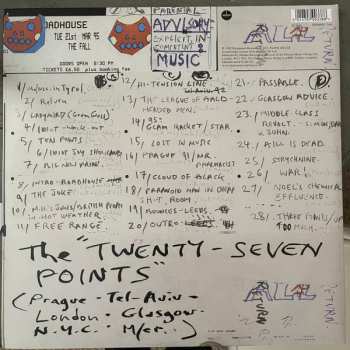 ROADHOUSE
TUE 21st MAR 95
THE FALL
DOORS OPEN 8:30 PM
TICKETS £6.50 plus booking fee
PARENTAL
ADVISORY
EXPLICIT IN
COMPETENT ?
MUSIC
RETURN
2. / Return
3. / LADYBIRD (Green Grass)
4. / IDIOT - WALK-OUT
5. / TEN POINTS
6. / IDIOT JOY SHOWLAND
7. / BIG NEW PRINZ
8. / INTRO: ROADHOUSE
9. / THE JOKE
10. / M.H.'s JOKES / BRITISH PEOPLE
IN HOT WEATHER.
11. / FREE RANGE.
12. / HI-TENSION LINE
13. / THE LEAGUE OF BALD-
HEADED MEN.
14. / 95:
GLAM RACKET / STAR
15. / LOST IN MUSIC
16. / PRAGUE 91 / MR.
PHARMACIST
17. / CLOUD OF BLACK
18. / PARANOID MAN IN CHEAP
SH-T. ROOM.
19. / BOUNCES - LEEDS.
20. / OUTRO - LEEDS
21. / PASSABLE.
22. / GLASGOW ADVICE.
23. / MIDDLE CLASS
REVOLT - SIMON, DAVE
& JOHN.
24. / BILL IS DEAD.
25. / STRYCHNINE.
26. / WAR!
27. / NOEL'S CHEMICAL
EFFLUENCE.
28. / THREE POINTS / UP
TOO MUCH.
The "TWENTY-SEVEN
POINTS"
(Prague - Tel-Aviv -
London - Glasgow -
N.Y.C. M/cr. -)
RETURN